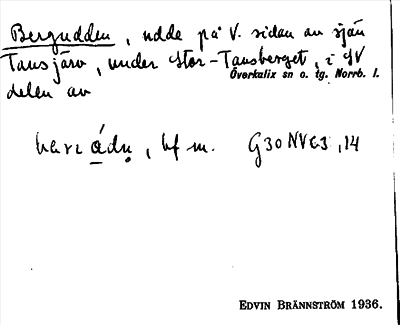 Bergudden, udde på V. sidan av sjön
Tansjärv, under Stor-Tansberget, i SV
Överkalix sn o. tg. Norrb. l.
delen av
bf m. G30NVG3, 14
EDVIN BRÄNNSTRÖM 1936.